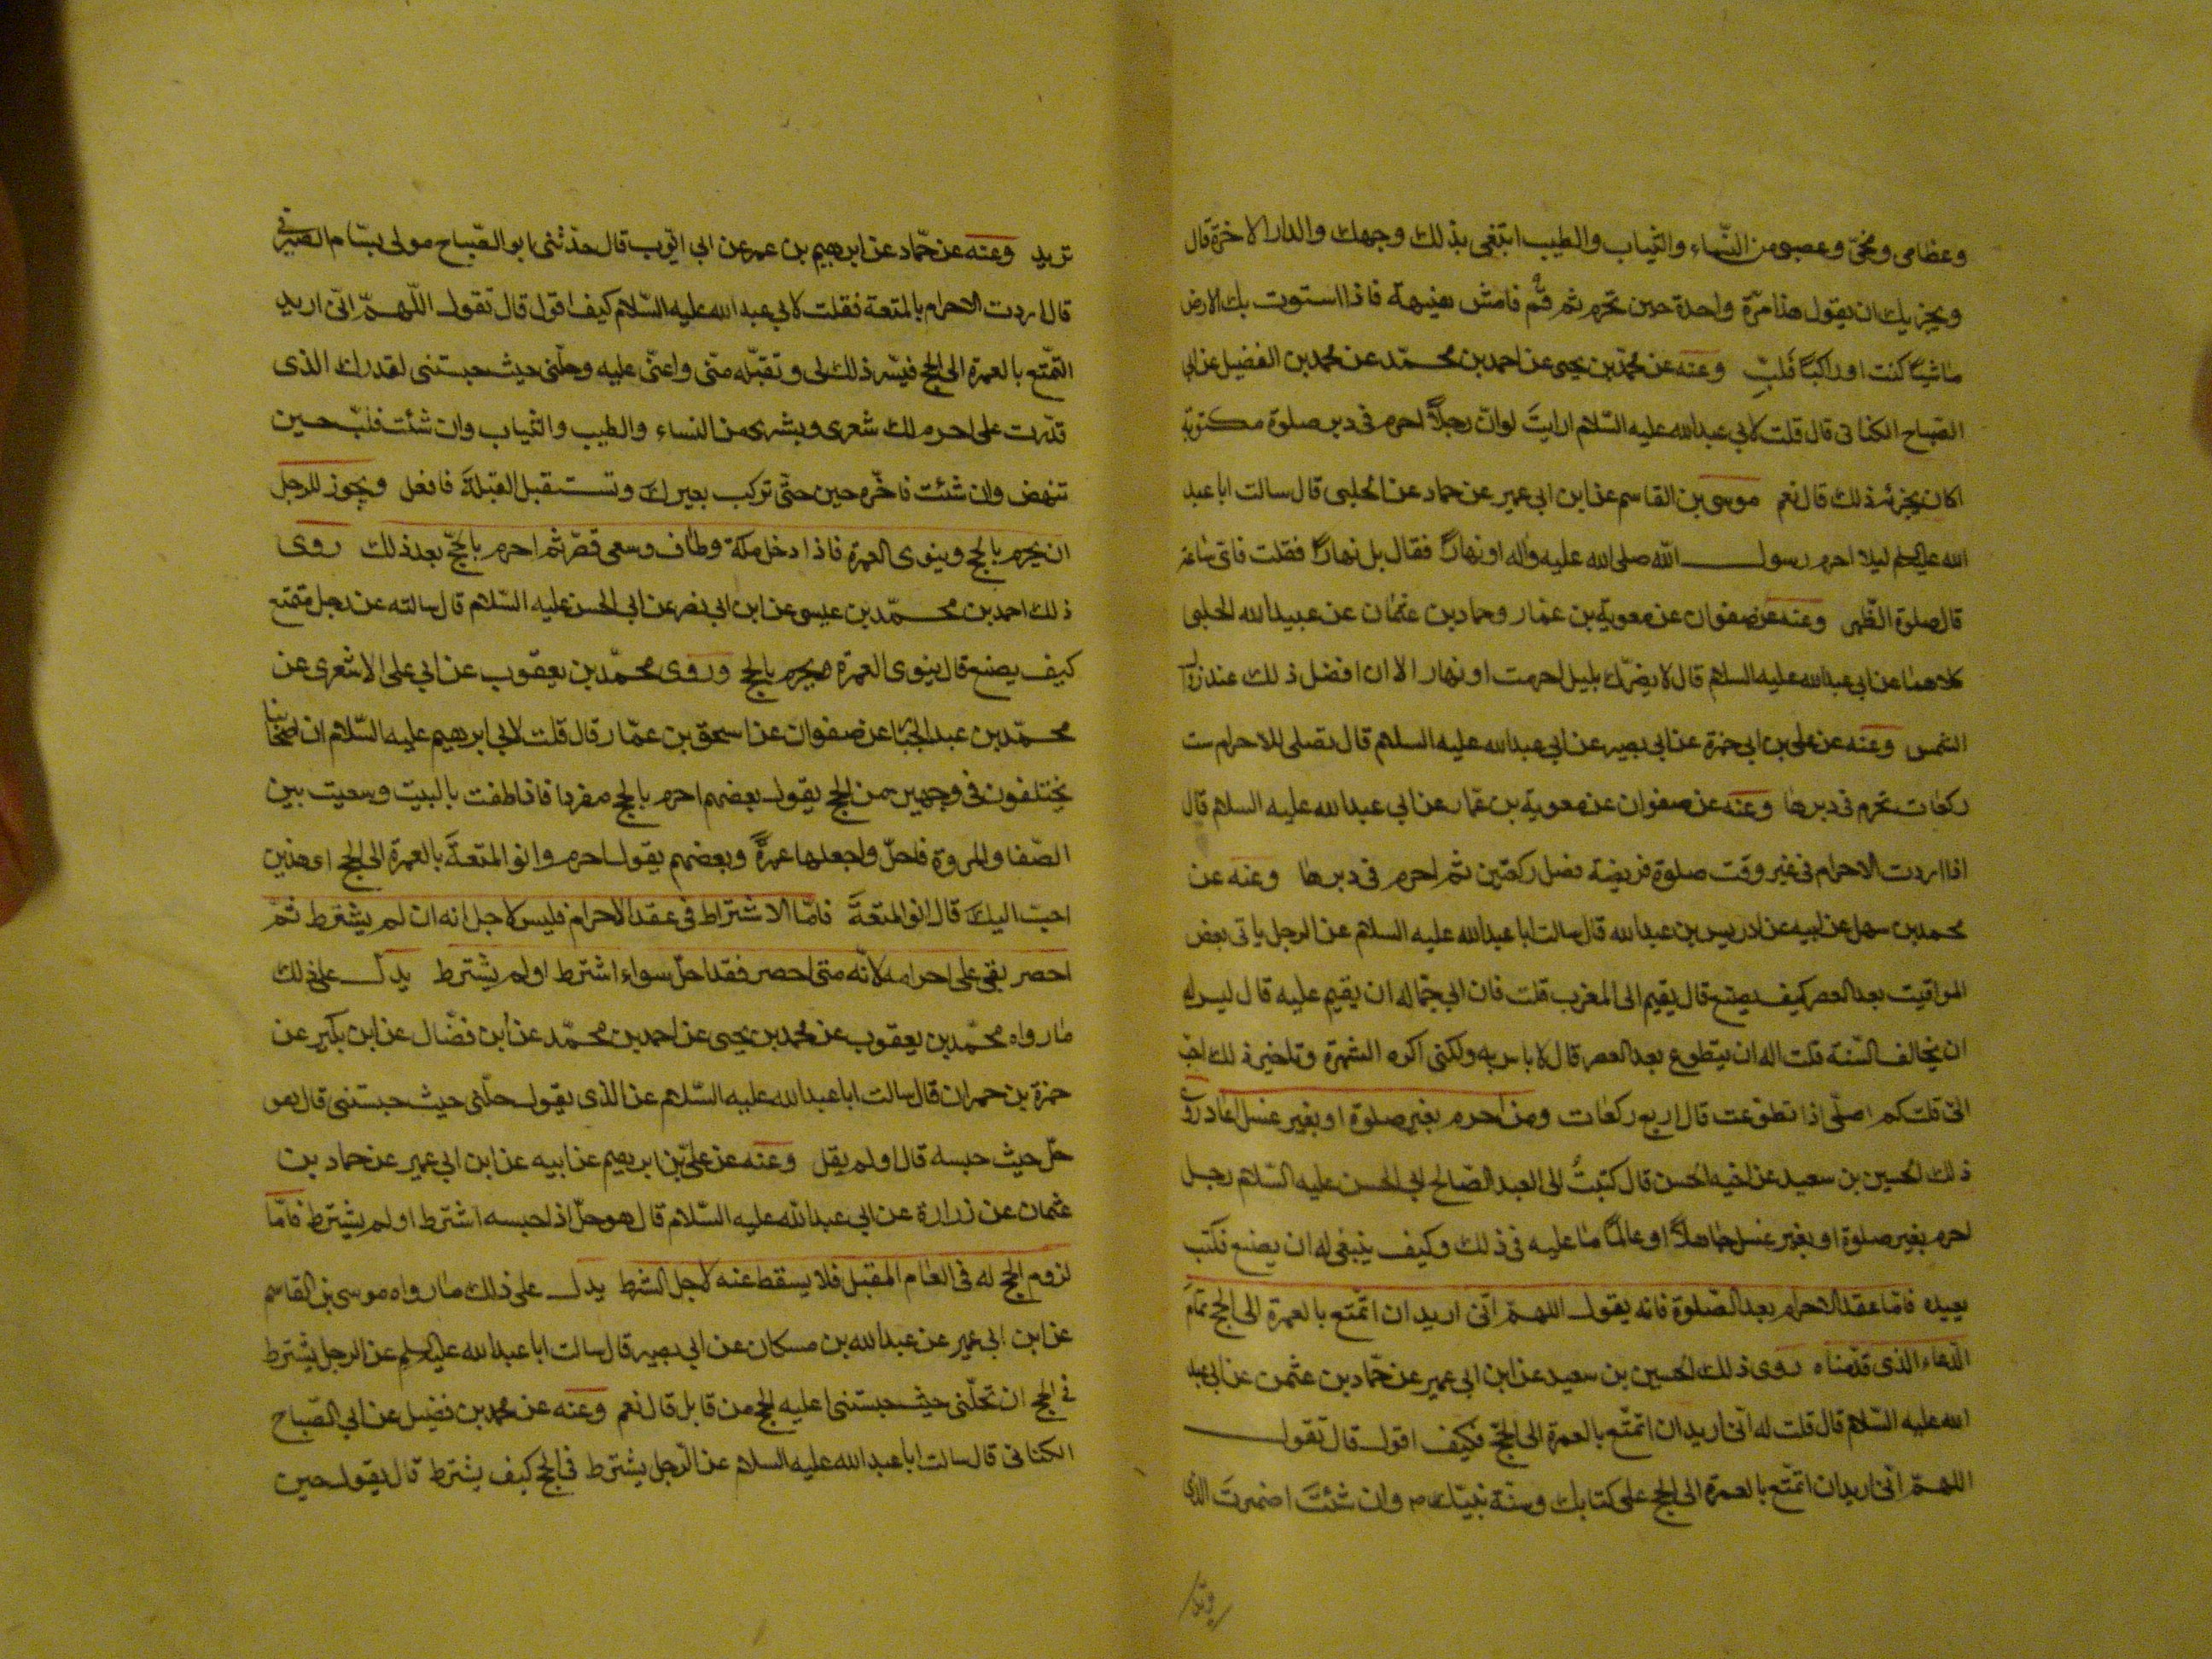 وعظامى ومخّى وعصبى من النّساء والثياب والطيب ابتغى بذلك وجهك والدار الاخرة قال
ويجزيك ان يقول هذا مرّة واحدة حين تحرم ثم قُم فامش هنيهة فاذا استوت بك الارض
ماشيًا كنت او راكبًا فَلَبِّ وعنه عن محمّد بن يحيى عن احمد بن محمّد عن محمد بن الفضيل عن ابى
الصّباح الكنانى قال قلت لابي عبدالله عليه السّلام ارايتَ لو انّ رجلاً احرم فى دبر صلوة مكتوبة
اكان يجزئه ذلك قال نعم موسى بن القاسم عن ابن ابى عمير عن حماد عن الحلبى قال سالت ابا عبد
الله عليه السلم ليلا احرم رسول الله صلى الله عليه واٰله او نهارًا فقال بل نهارًا فقلت فاى ساعة
قال صلوة الظّهر وعنه عن صفوان عن معوية بن عمّار وحماد بن عثمان عن عبيد الله الحلبى
كلاهما عن ابى عبدالله عليه السلام قال لا يضرّك بليل احرمت او نهار الا ان افضل ذلك عند زوال
الشمس وعنه عن على بن ابى حمزة عن ابى بصير عن ابى عبدالله عليه السلام قال تصلى للاحرام ست
ركعات تحرم فى دبرها وعنه عن صفوان عن معوية بن عمّار عن ابى عبدالله عليه السلام قال
اذا اردت الاحرام فى غير وقت صلوة فريضة فصل ركعتين ثم احرم فى دبرها وعنه عن
محمد بن سهل عن ابيه عن ادريس بن عبدالله قال سالت ابا عبدالله عليه السلام عن الرجل ياتى بعض
المواقيت بعد العصر كيف يصنع قال يقيم الى المغرب قلت فان ابى جمّاله ان يقيم عليه قال ليس له
ان يخالف السّنة قلت اله ان يتطوع بعد العصر قال لا باس به ولكنى اكره الشهرة وتاخير ذلك احبّ
الىّ قلت كم اصلّى اذا تطوّعت قال اربع ركعات ومن احرم بغير صلوة او بغير غسل اعاد روى
ذلك الحسين بن سعيد عن اخيه الحسن قال كتبتُ الى العبد الصّالح ابى الحسن عليه السّلام رجل
احرم بغير صلوة او بغير غسل جاهلاً او عالمًا ما عليه فى ذلك وكيف ينبغى له ان يصنع فكتب
يعيده فامّا عقد الاحرام بعد الصّلوة فانه يقول اللهمّ انّى اريد ان اتمّتع بالعمرة الى الحج تمام
الدّعاء الذى قدّمناه روى ذلك الحسين بن سعيد عن ابن ابى عمير عن حمّاد بن عثمن عن ابى عبد
الله عليه السّلام قال قلت له انّى اريد ان اتمتّع بالعمرة الى الحجّ فكيف اقول قال تقول
اللهمّ انّى اريد ان اتمّتع بالعمرة الى الحج على كتابك وسنّة نبيّك ص وان شئتَ اضمرتَ الذى
تريد وعنه عن حمّاد عن ابرهيم بن عمر عن ابى ايّوب قال حدّثنى ابو الصّباح مولى بسّام الصّيرفى
قال اردت الاحرام بالمتعة فقلت لابى عبدالله عليه السّلام كيف اقول قال تقول اللّهمّ انّى اريد
التمّتع بالعمرة الى الحج فيسّر ذلك لى وتقبّله منّى واعنّى عليه وحلّنى حيث حبستنى لقدرك الذى
قدّرت على احرم لك شعرى وبشرى من النساء والطيب والثياب وان شئت فلبّ حين
تنهض وان شئت فاخّره حين حتّى تركب بعيرك وتستقبل القبلة فافعل ويجوز للرجل
ان يحرم بالحج وينوى العمرة فاذا دخل مكة وطاف وسعى قصّر ثم احرم بالحجّ بعد ذلك روى
ذلك احمد بن محمّد بن عيسى عن ابن ابى نصر عن ابى الحسن عليه السّلام قال سالته عن رجل متمتع
كيف يصنع قال ينوى العمرة ويحرم بالحج وروى محمّد بن يعقوب عن ابى على الاشعرى عن
محمّد بن عبد الجبّار عن صفوان عن اسحق بن عمّار قال قلت لابى ابرهيم عليه السّلام ان اصحابنا
يختلفون فى وجهين من الحج يقول بعضهم احرم بالحج مفردا فاذا طفت بالبيت وسعيت بين
الصّفا والمروة فاحلّ واجعلها عمرةً وبعضهم يقول احرم وانو المتعةَ بالعمرة الى الحج اى هذين
احبّ اليك قال انو المتعةَ فامّا الاشتراط فى عقد الاحرام فليس لاجل انه ان لم يشترط ثمّ
احصر بقى على احرامه لانّه متى احصر فقد احلّ سواء اشترط او لم يشترط يدل على ذلك
ما رواه محمّد بن يعقوب عن محمد بن يحيى عن احمد بن محمّد عن ابن فضّال عن ابن بكير عن
حمزة بن حمران قال سالت ابا عبدالله عليه السّلام عن الذى يقول حلّنى حيث حبستنى قال هو
حلّ حيث حبسه قال او لم يقل وعنه عن علىّ بن ابرهيم عن ابيه عن ابن ابى عمير عن حماد بن
عثمان عن زرارة عن ابى عبد الله عليه السّلام قال هو حلّ اذا حبسه اشترط او لم يشترط فامّا
لزوم الحج له فى العام المقبل فلا يسقط عنه لاجل الشرط يدل على ذلك ما رواه موسى بن القاسم
عن ابن ابى عمير عن عبدالله بن مسكان عن ابى بصير قال سالت ابا عبدالله عليه السلم عن الرجل يشترط
فى الحج ان تحلّنى حيث حبستنى اعليه الحج من قابل قال نعم وعنه عن محمد بن فضيل عن ابى الصّباح
الكنانى قال سالت ابا عبدالله عليه السلام عن الرّجل يشترط فى الحج كيف يشترط قال يقول حين